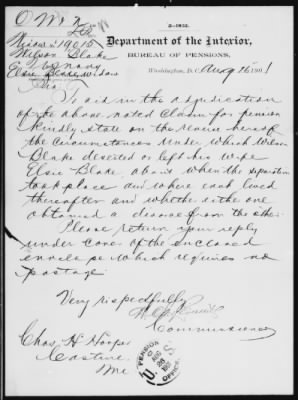 O W & N
3-2132.
Department of the Interior,
BUREAU OF PENSIONS,
Washington, D.C. Aug 16 1901
Widow 19015
Wilson Blake
U.S. Navy
Elsie Blake, widow
Sir:
To aid in the adjudication
of the above noted claim for pension
kindly state on the reverse hereof
the circumstances under which Wilson
Blake deserted or left his wife
Elsie Blake, about when the separation
took place and where each lived
thereafter and whether either one
obtained a divorce from the other.
Please return your reply
under cover of the enclosed
envelope which requires no
postage.
Very respectfully
Commissioner
Chas. H. Hooper
Castine,
Me
U.S. PENSION OFFICE
AUG 26 1901